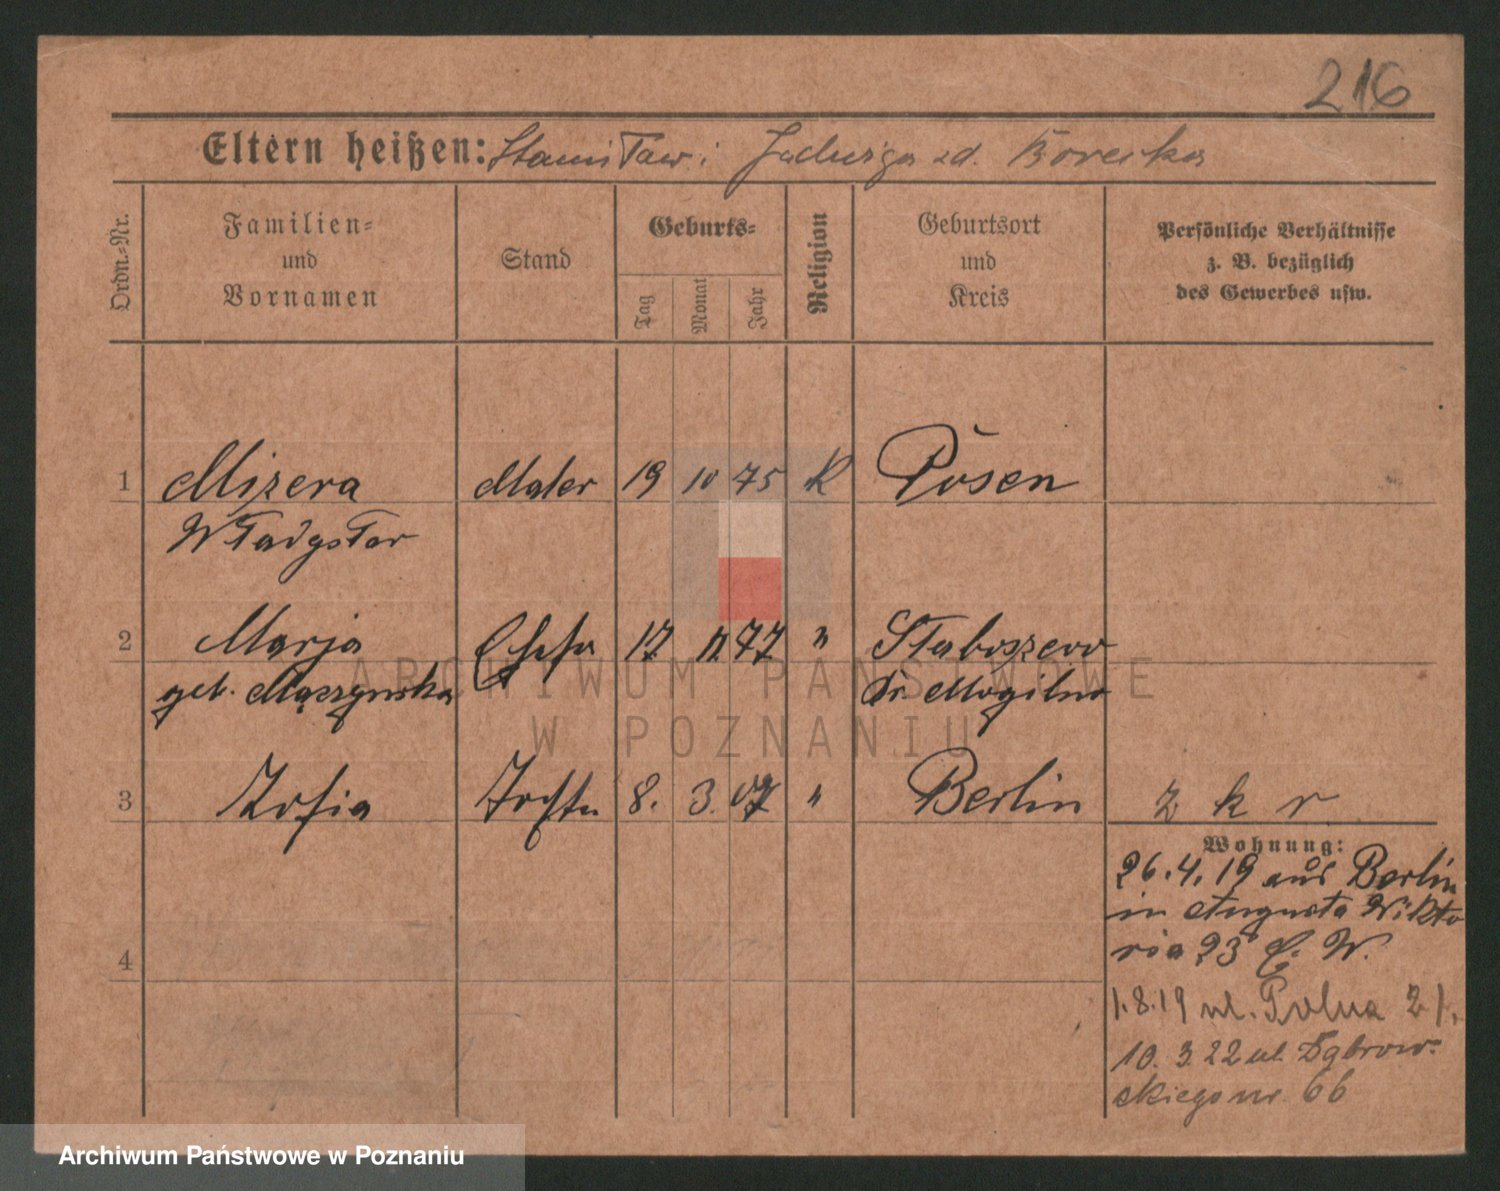 216
Eltern heißen: Stanisław i Jadwiga zd. Borecka
Ordn.-Nr.
Familien-
und
Vornamen
Stand
Geburts-
Tag
Monat
Jahr
Religion
Geburtsort
und
Kreis
Persönliche Verhältnisse
z. B. bezüglich
des Gewerbes usw.
1 Mizera Maler 19 10 75 K Posen
Władysław
2 Marja Ehefr 17 11 77 " Staboszewo
geb. Mączynska Kr. Mogilno
3 Zofia Tochter 8. 3. 07 " Berlin z k r
Wohnung:
26.4.19 aus Berlin
in Augusta Wikto
ria 23 E. W.
4
1.8.19 ul. Polna 21.
10.3.22 ul. Dąbrow-
skiego nr. 66
ARCHIWUM PAŃSTWOWE
W POZNANIU
Archiwum Państwowe w Poznaniu